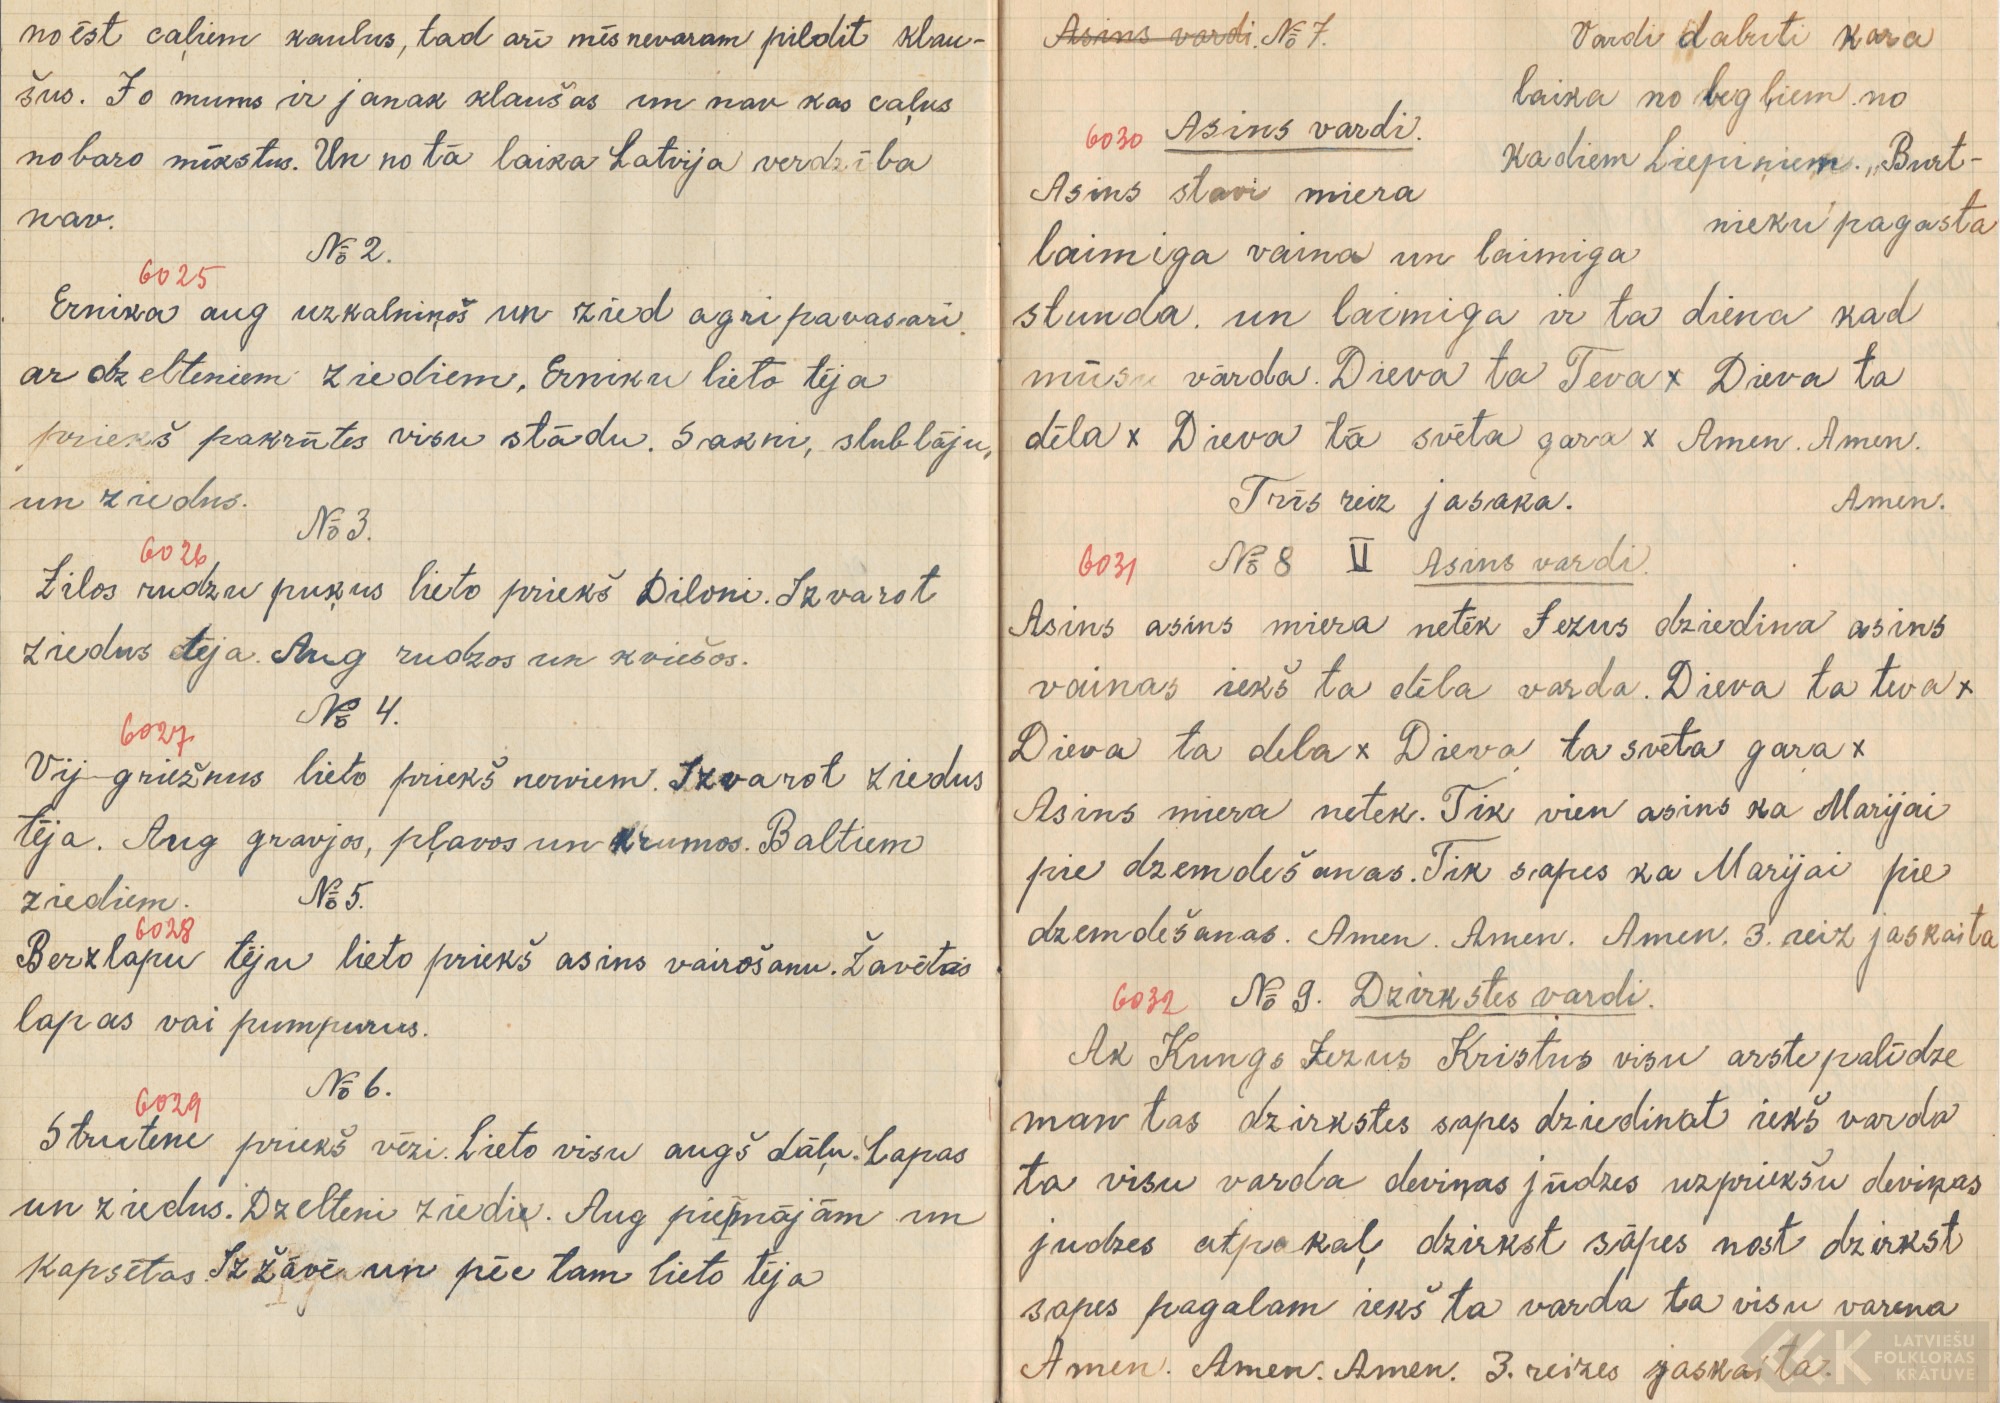 no ēst caļiem kaulus, tad arī mēs nevaram pildit klau-
šus. Jo mums ir janak klaušas un nav kas caļus
nobaro mīkstus. Un no tā laika Latvija verdzība
nav.
№ 2.
6025
Ernika aug uzkalniņos un zied agri pavasarī
ar dzelteniem ziediem, Erniku lieto tēja
priekš pakrūtes visu stādu. Sakni, stublāju,
un ziedus.
№ 3.
6026
Zilos rudzu puķus lieto priekš Diloni. Izvarot
ziedus tēja. Aug rudzos un kviešos.
№ 4.
6027
Vij-griežnus lieto priekš nerviem. Izvarot ziedus
tēja. Aug gravjos, pļavos un krumos. Baltiem
ziediem.
№ 5.
6028
Berzlapu tēju lieto priekš asins vairošanu. Žavētas
lapas vai pumpurus.
№ 6.
6029
Strutene priekš vēzi. Lieto visu augš dāļu. Lapas
un ziedus. Dzelteni ziedi. Aug pie mājām un
Kapsētas. Izžāvē un pēc tam lieto tēja
Asins vardi. № 7.
Vardi dabuti kara
laika no begļiem no
kadiem Liepiņiem. „Burt-
nieku" pagasta
6030 Asins vardi.
Asins stavi miera
laimiga vaina un laimiga
stunda. un laimiga ir ta diena kad
mūsu vārda. Dieva ta Teva x Dieva ta
dēla x Dieva tā svēta gara x Amen. Amen.
Trīs reiz jasaka. Amen.
6031 № 8 II Asins vardi.
Asins asins miera netēk Jezus dziedina asins
vainas iekš ta dēla varda. Dieva ta teva x
Dieva ta dela x Dieva ta svēta gara x
Asins miera netek. Tik vien asins ka Marijai
pie dzemdešanas. Tik sapes ka Marijai pie
dzemdešanas. Amen. Amen. Amen. 3. reiz jaskaita
6032 № 9. Dzirkstes vardi.
Ak Kungs Jezus Kristus visu arste palīdze
man tas dzirkstes sapes dziedinat iekš varda
ta visu varda deviņas jūdzes uzpriekšu deviņas
judzes atpakaļ dzirkst sāpes nost dzirkst
sapes pagalam iekš ta varda ta visu varena
Amen. Amen. Amen. 3. reizes jaskaita.
LATVIEŠU
FOLKLORAS
KRATUVE